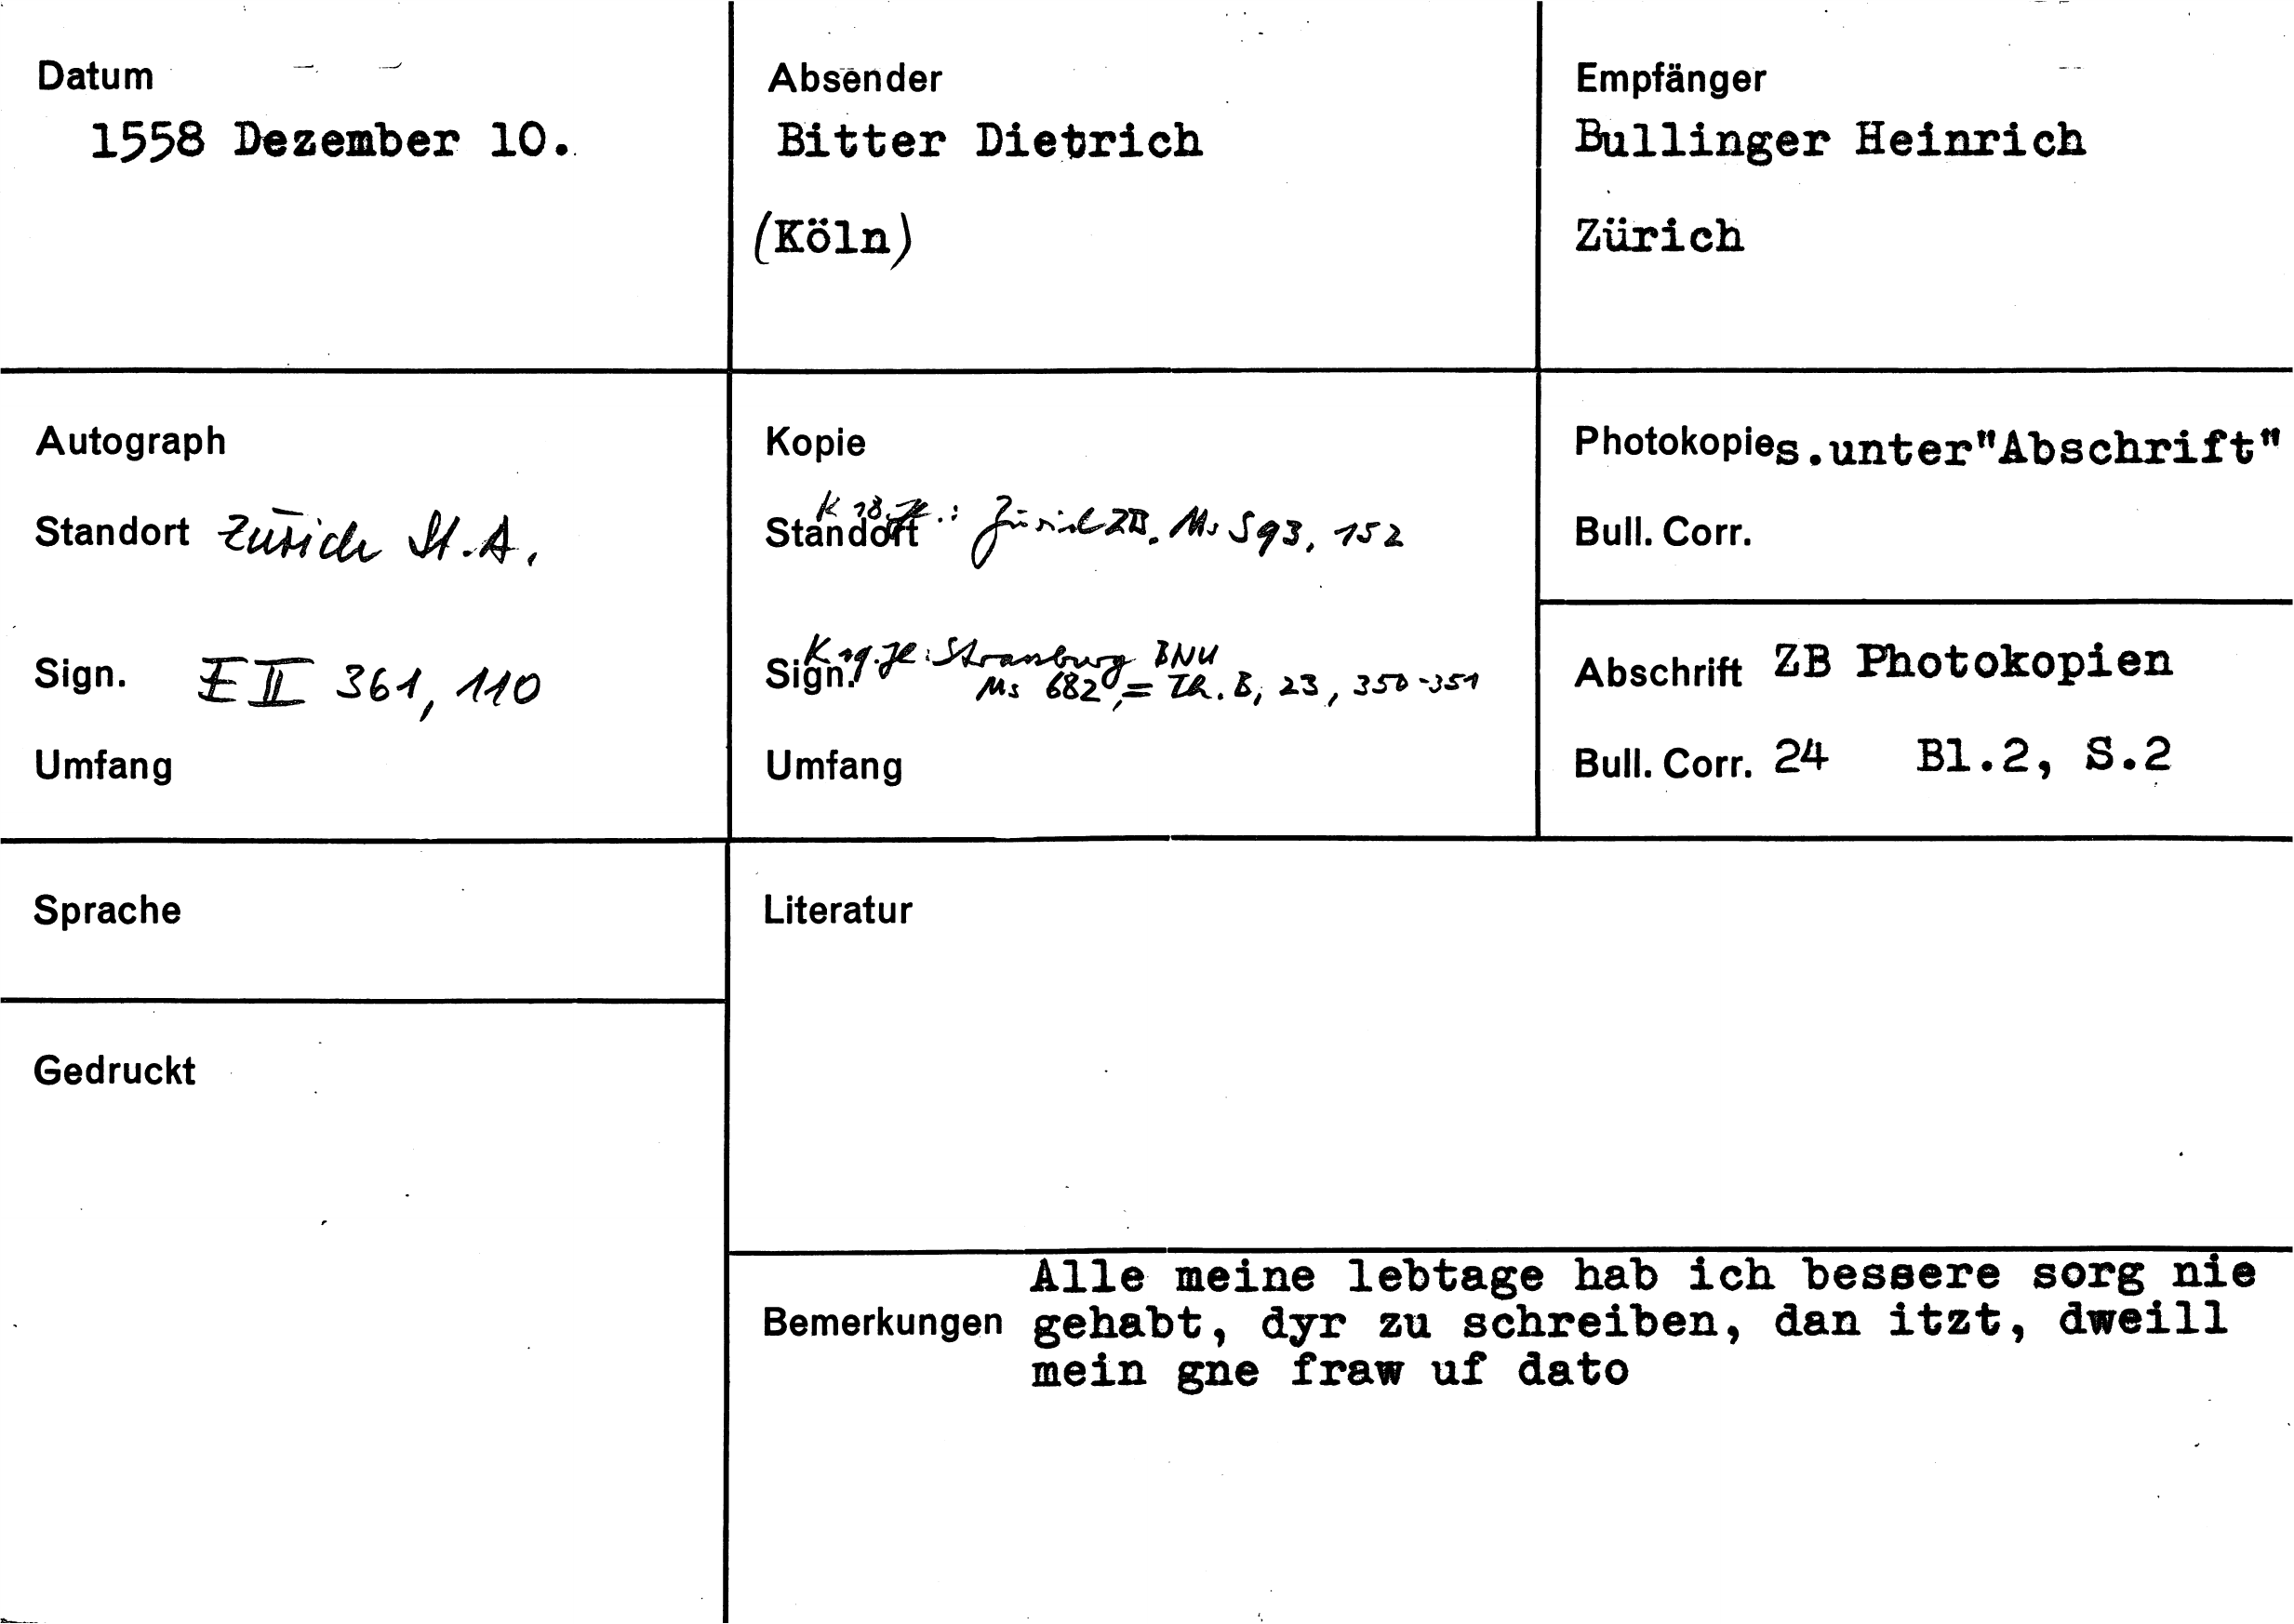 Datum
1558 Dezember 10.
Absender
Bitter Dietrich
(Köln)
Empfänger
Bullinger Heinrich
Zürich
Autograph
Standort Zürich St.A.
Sign. E II 361, 110
Umfang
Kopie
K 18. Jh.: Zürich ZB. Ms S 93, 152
Standort
K 19. Jh: Strassburg BNU
Sign. Ms 682, = Th. B, 23, 350-351
Umfang
Photokopie s.unter"Abschrift"
Bull. Corr.
Abschrift ZB Photokopien
Bull. Corr. 24 Bl.2, S.2
Sprache
Literatur
Gedruckt
Alle meine lebtage hab ich bessere sorg nie
Bemerkungen gehabt, dyr zu schreiben, dan itzt, dweill
mein gne fraw uf dato